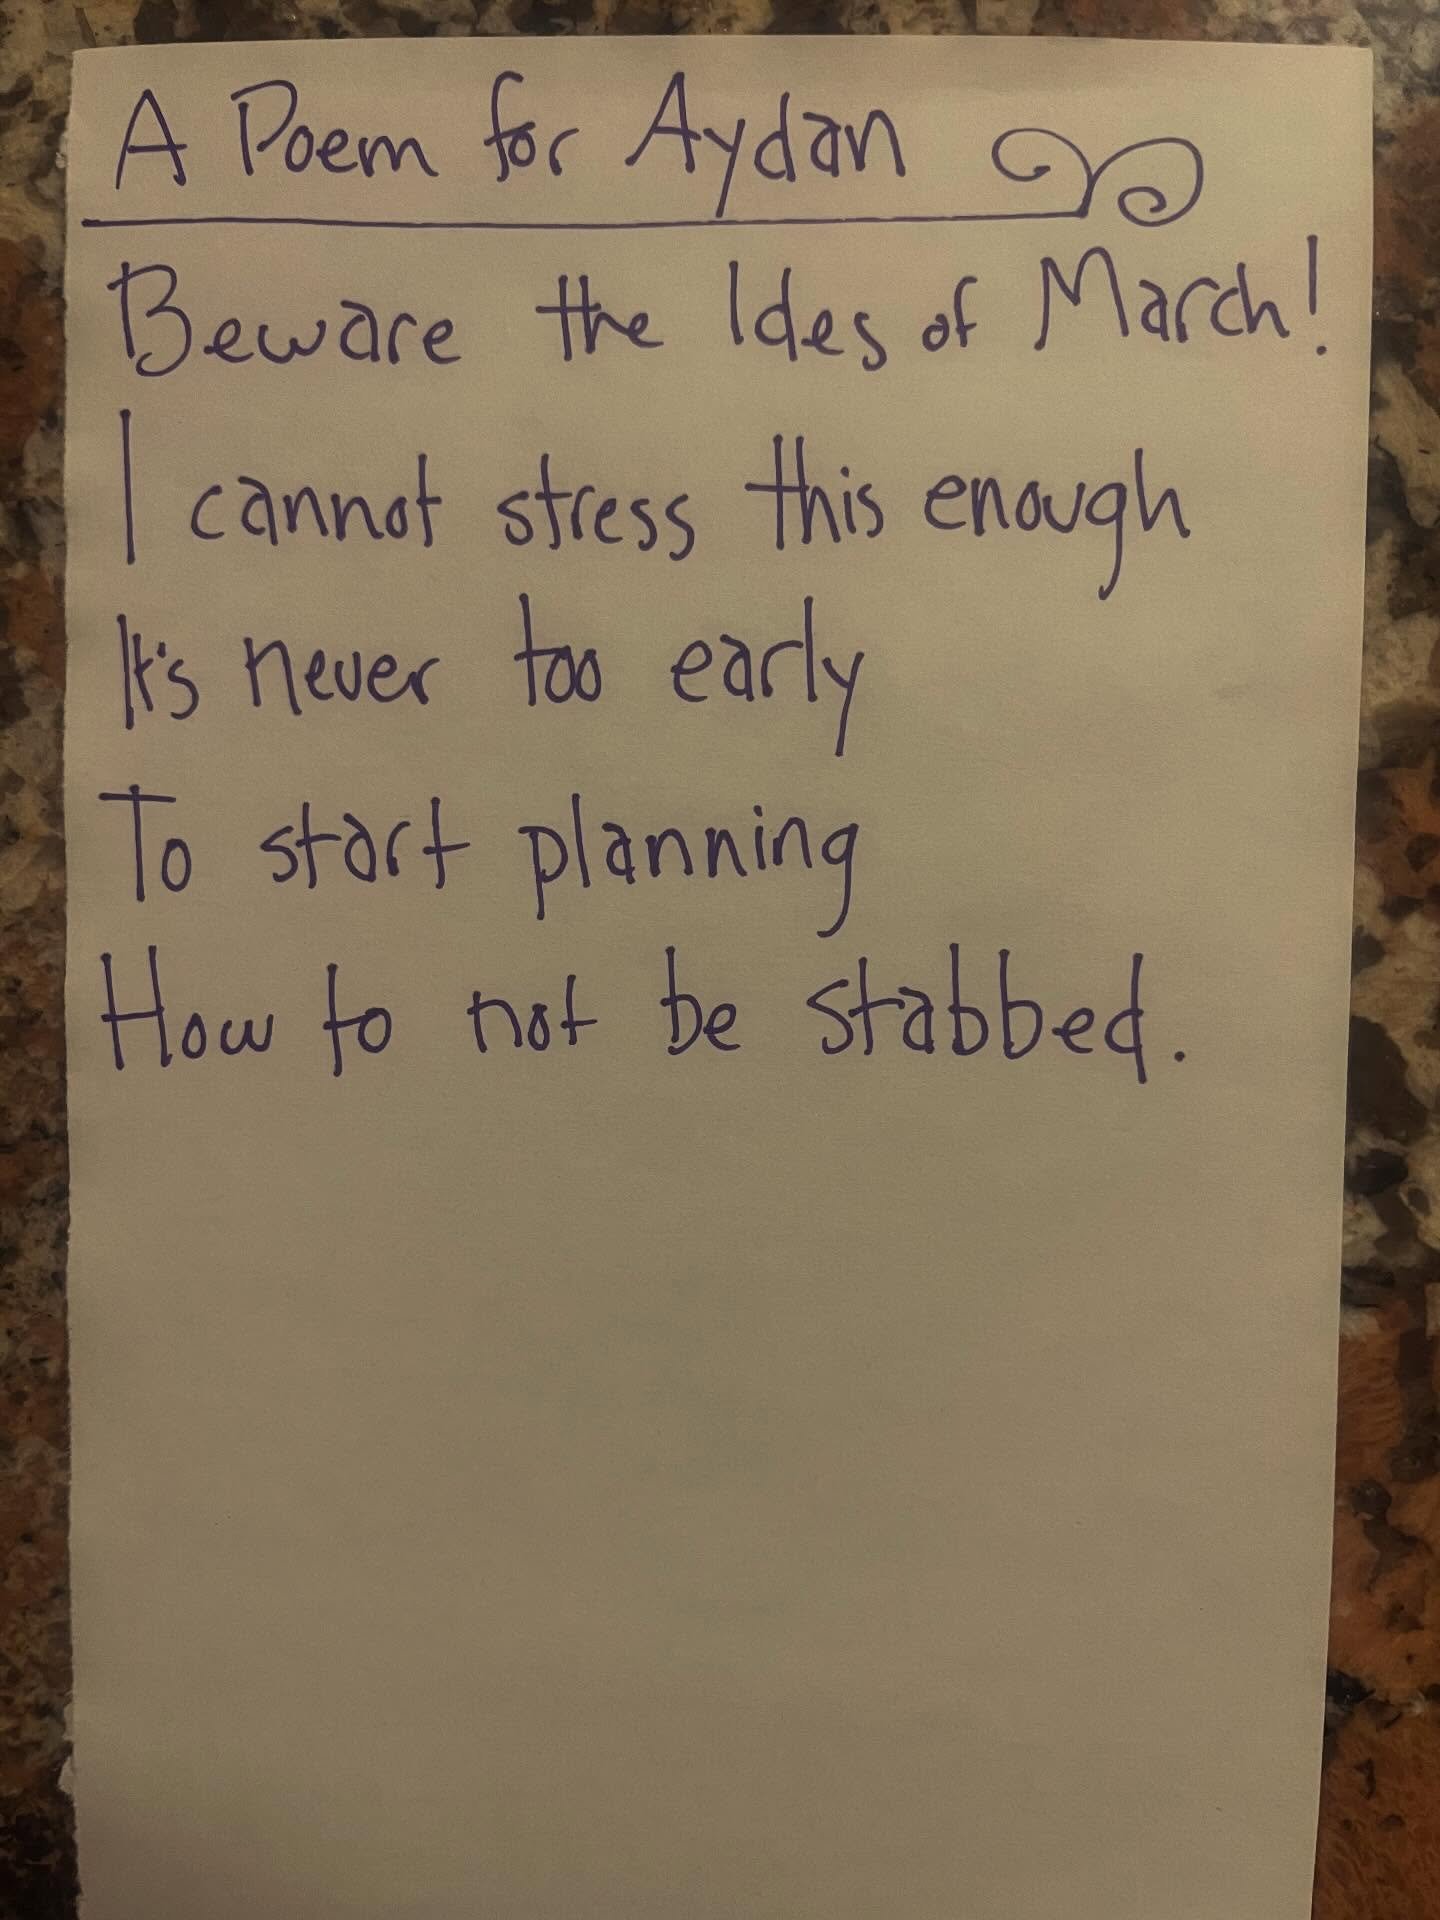 A Poem for Aydan
Beware the Ides of March!
I cannot stress this enough
It's never too early
To start planning
How to not be stabbed.